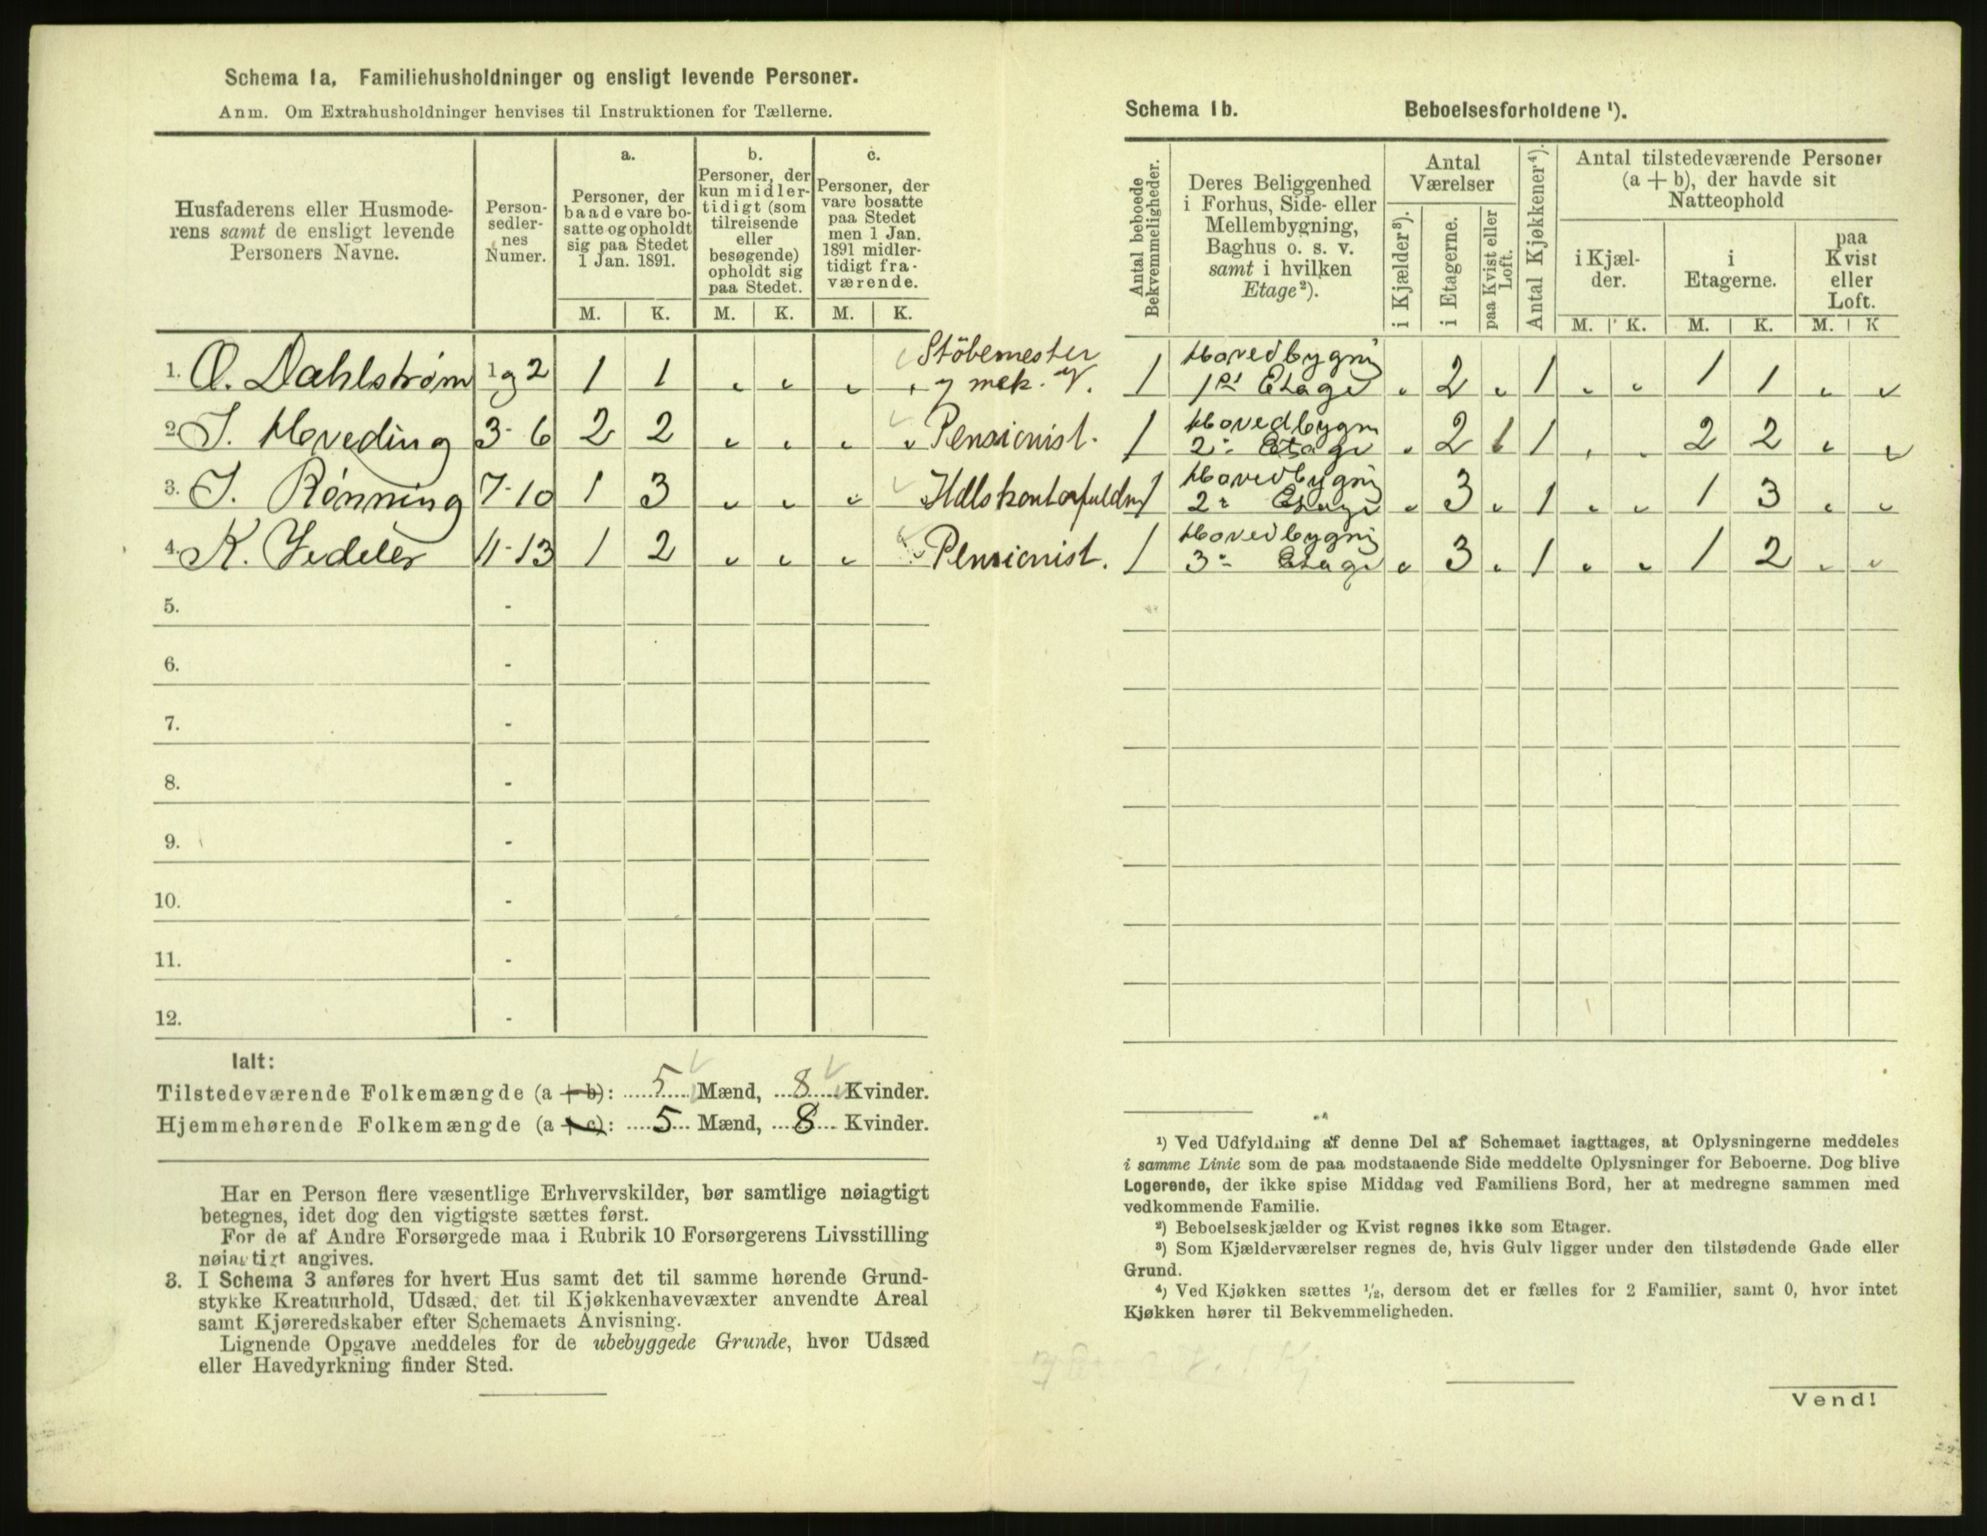 Schema 1a. Familiehusholdninger og ensligt levende Personer.
Anm. Om Extrahusholdninger henvises til Instruktionen for Tællerne.
Husfaderens eller Husmode-
rens samt de ensligt levende
Personers Navne.
Person-
sedler-
nes
Numer.
a.
Personer, der
baade vare bo-
satte og opholdt
sig paa Stedet
1 Jan. 1891.
b.
Personer, der
kun midler-
tidigt (som
tilreisende
eller
besøgende)
opholdt sig
paa Stedet.
c.
Personer, der
vare bosatte
paa Stedet
men 1 Jan.
1891 midler-
tidigt fra-
værende.
M. K. M. K. M. K.
1. O. Dahlstrøm 1 og 2 1 1 „ „ „ „ Stöbemester
2. J. Hoveding 3-6 2 2 „ „ „ „ Pensionist.
3. J. Rönning 7-10 1 3 „ „ „ „ Hdlskontorfuldm
4. K. Vedeler 11-13 1 2 „ „ „ „ Pensionist.
5. -
6. -
7. -
8. -
9. -
10. -
11. -
12. -
Ialt:
Tilstedeværende Folkemængde (a + b): 5 Mænd, 8 Kvinder.
Hjemmehørende Folkemængde (a + c): 5 Mænd, 8 Kvinder.
Har en Person flere væsentlige Erhvervskilder, bør samtlige nøiagtigt
betegnes, idet dog den vigtigste sættes først.
For de af Andre Forsørgede maa i Rubrik 10 Forsørgerens Livsstilling
nøiagtigt angives.
3. I Schema 3 anføres for hvert Hus samt det til samme hørende Grund-
stykke Kreaturhold, Udsæd, det til Kjøkkenhavevæxter anvendte Areal
samt Kjøreredskaber efter Schemaets Anvisning.
Lignende Opgave meddeles for de ubebyggede Grunde, hvor Udsæd
eller Havedyrkning finder Sted.
Schema 1b. Beboelsesforholdene ¹).
Antal beboede
Bekvemmeligheder.
Deres Beliggenhed
i Forhus, Side- eller
Mellembygning,
Baghus o. s. v.
samt i hvilken
Etage²).
Antal
Værelser
i Kjælder³).
i Etagerne.
paa Kvist eller
Loft.
Antal Kjøkkener⁴).
Antal tilstedeværende Personer
(a + b), der havde sit
Natteophold
i Kjæl-
der.
i
Etagerne.
paa
Kvist
eller
Loft.
M. K. M. K. M. K
1 Hovedbygni
1ste Etage „ 2 „ 1 „ „ 1 1 „ „
1 Hovedbygni
2. Etage „ 2 1 1 „ „ 2 2 „ „
1 Hovedbygni
2. Etage „ 3 „ 1 „ „ 1 3 „ „
1 Hovedbygni
3. Etage „ 3 „ 1 „ „ 1 2 „ „
¹) Ved Udfyldning af denne Del af Schemaet iagttages, at Oplysningerne meddeles
i samme Linie som de paa modstaaende Side meddelte Oplysninger for Beboerne. Dog blive
Logerende, der ikke spise Middag ved Familiens Bord, her at medregne sammen med
vedkommende Familie.
²) Beboelseskjælder og Kvist regnes ikke som Etager.
³) Som Kjælderværelser regnes de, hvis Gulv ligger under den tilstødende Gade eller
Grund.
⁴) Ved Kjøkken sættes ½, dersom det er fælles for 2 Familier, samt 0, hvor intet
Kjøkken hører til Bekvemmeligheden.
Vend!